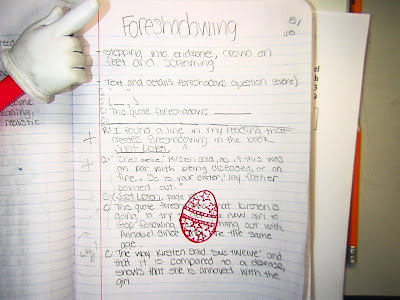 Foreshadowing
stepping into endzone, crowd on
feet and screaming
Text and details foreshadows question (event)
S: (__,)
C: This quote foreshadows
C:
R: I found a line in my reading that
creates foreshadowing in the book
Just Listen.
"She's twelve,' Kirsten said, as if this was
on par with being diseased, or on
fire. 'So is your sister,' my father
pointed out."
S: (Just Listen, page
C: This quote that Kirsten is
going to try new girl to
stop following out with
Annabel since the same
age.
why?
C: The way Kirsten said 'She's twelve' and
that it is compared to a disease,
shows that she is annoyed with the
girl